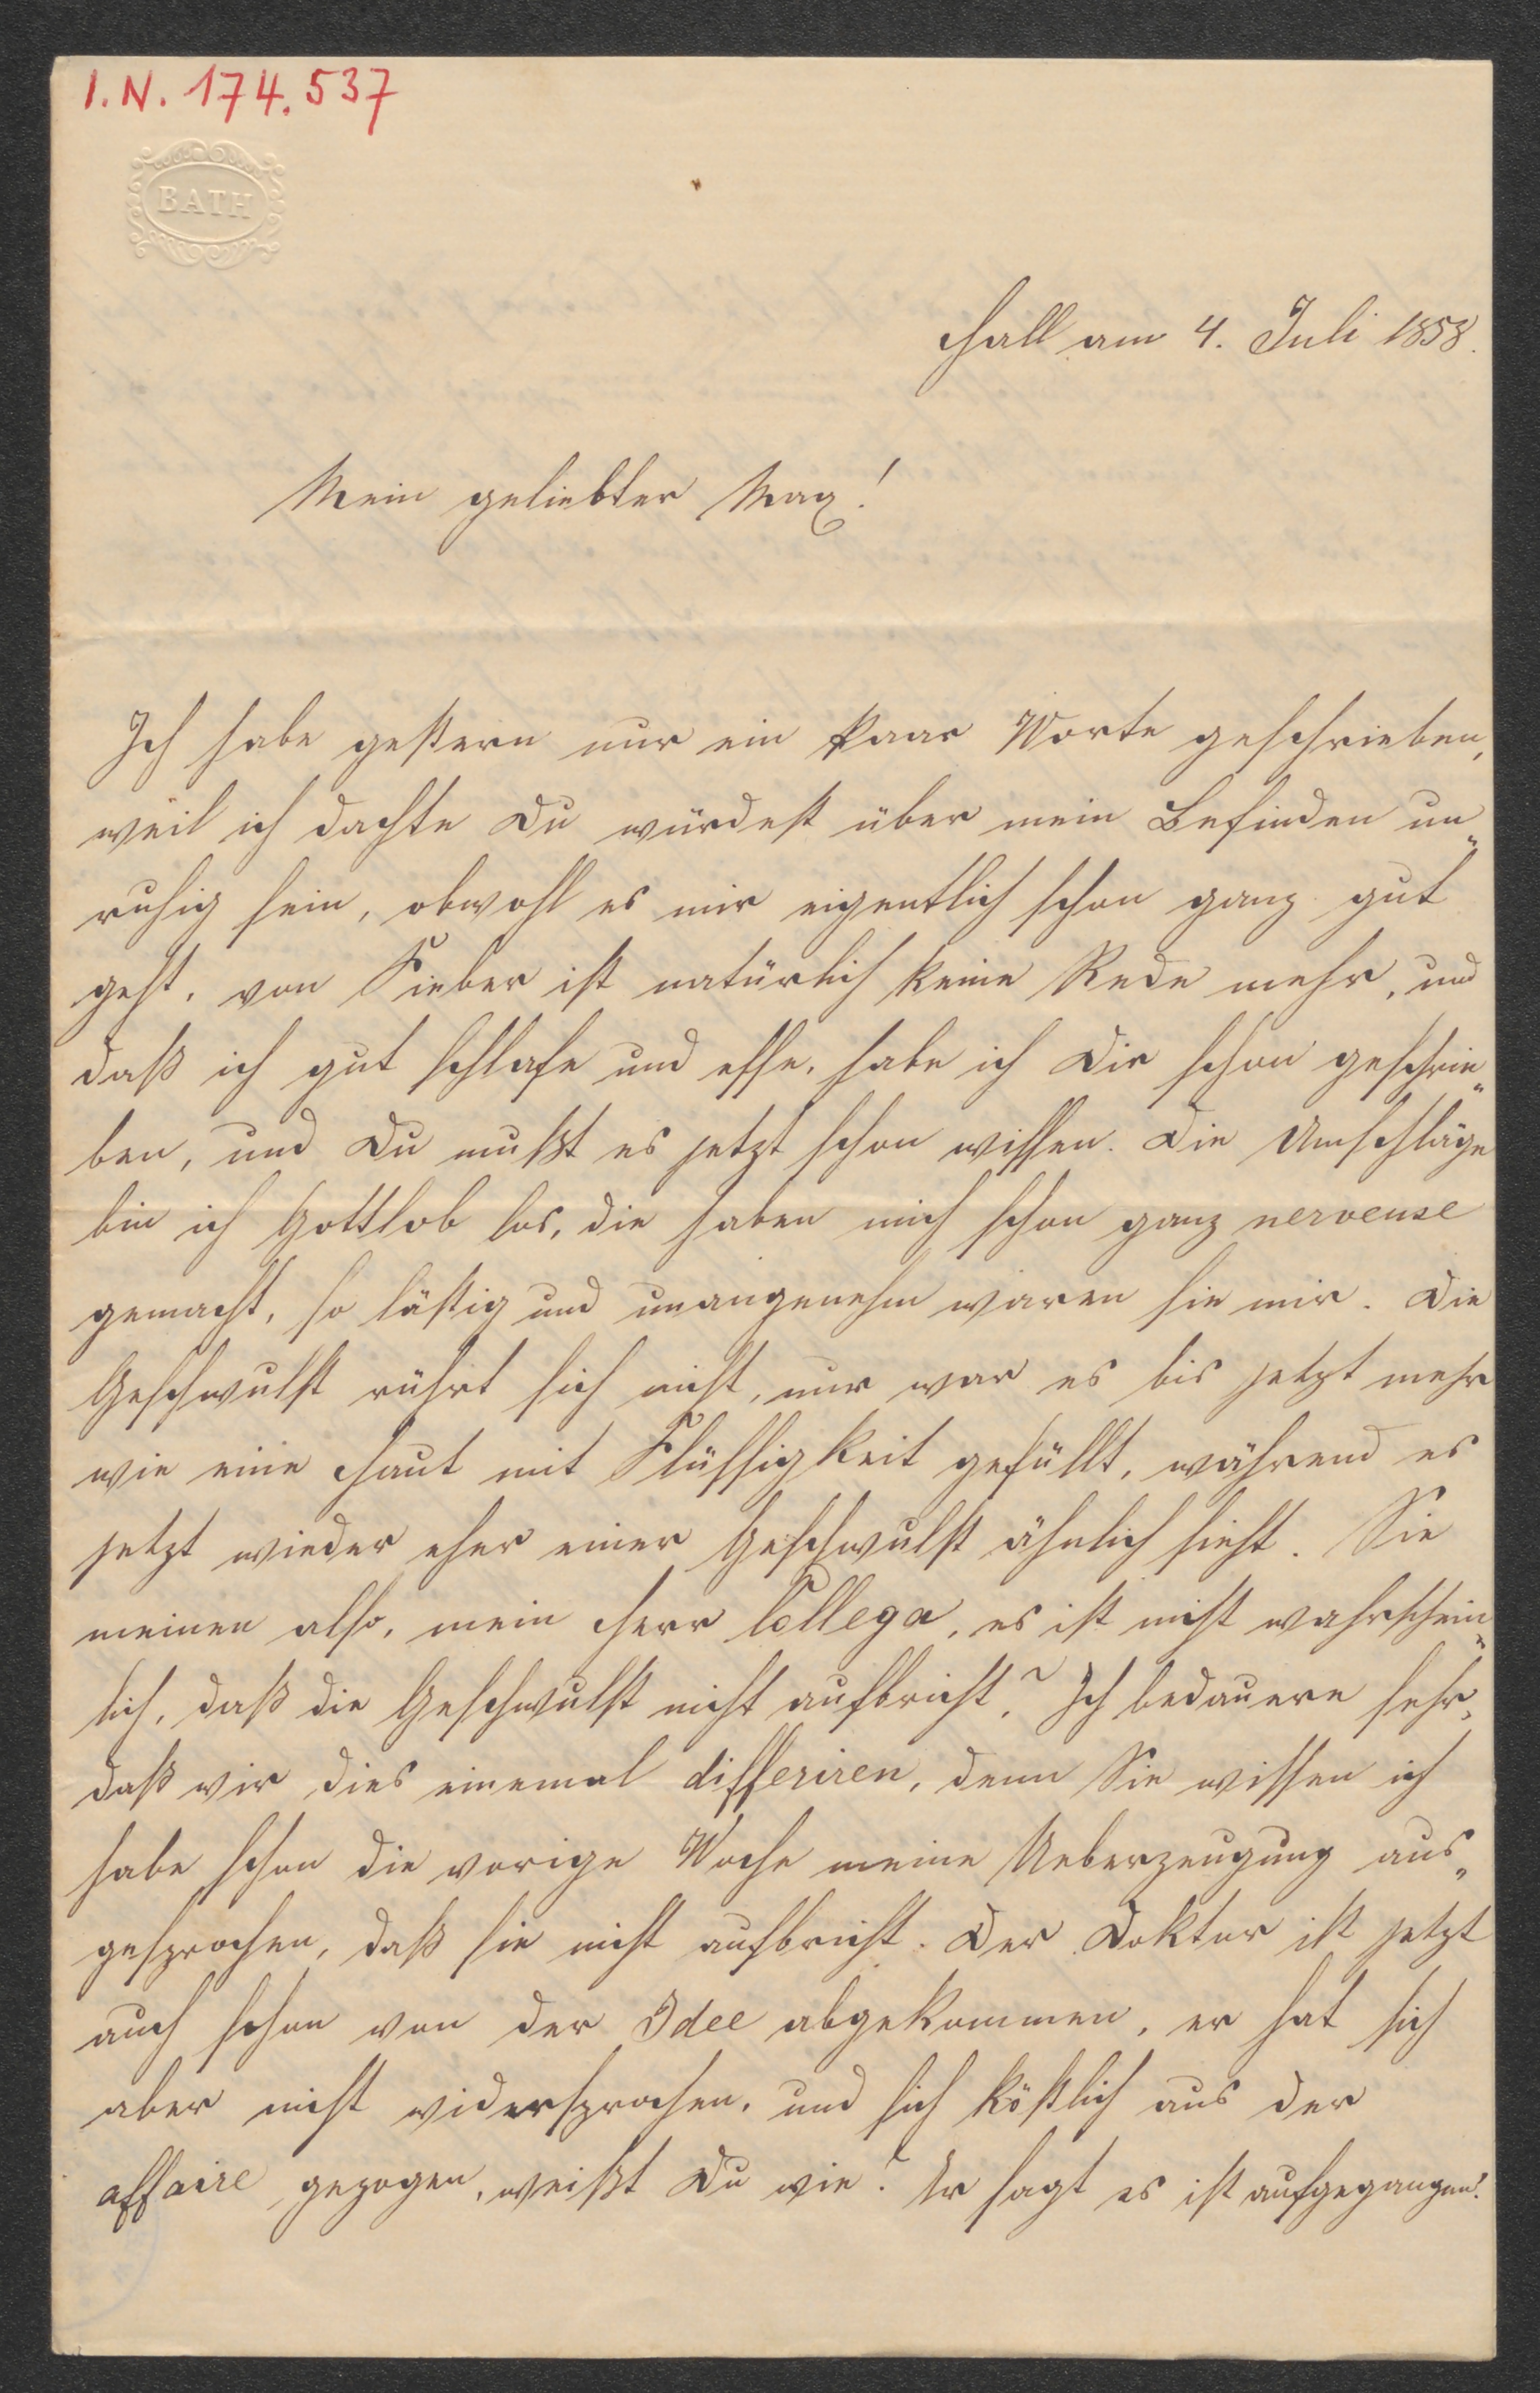 I.N. 174.537
BATH
Hall am 4. Juli 1858.
Mein geliebter Max!
Ich habe gestern nur ein Paar Worte geschrieben,
weil ich dachte Du würdest über mein Befinden un„
ruhig sein, obwohl es mir eigentlich schon ganz gut
geht, von Fieber ist natürlich keine Rede mehr, und
daß ich gut schlafe und esse, habe ich Dir schon geschrie„
ben, und Du mußt es jetzt schon wissen. Die Umschläge
bin ich Gottlob los, die haben mich schon ganz nerveuse
gemacht, so lästig und unangenehm waren sie mir. Die
Geschwulst rührt sich nicht, nur war es bis jetzt mehr
wie eine Haut mit Flüssigkeit gefüllt, während es
jetzt wieder eher einer Geschwulst ähnlich sieht. Sie
meinen also, mein Herr Collega, es ist nicht wahrschein„
lich, daß die Geschwulst nicht aufbricht? Ich bedauere sehr,
daß wir dies einemal differiren, denn Sie wissen ich
habe schon die vorige Woche meine Ueberzeugung aus„
gesprochen, daß sie nicht aufbricht. Der Doktor ist jetzt
auch schon von der Idee abgekommen, er hat sich
aber nicht widersprochen, und sich köstlich aus der
affaire gezogen, weißt Du wie? Er sagt es ist aufgegangen!